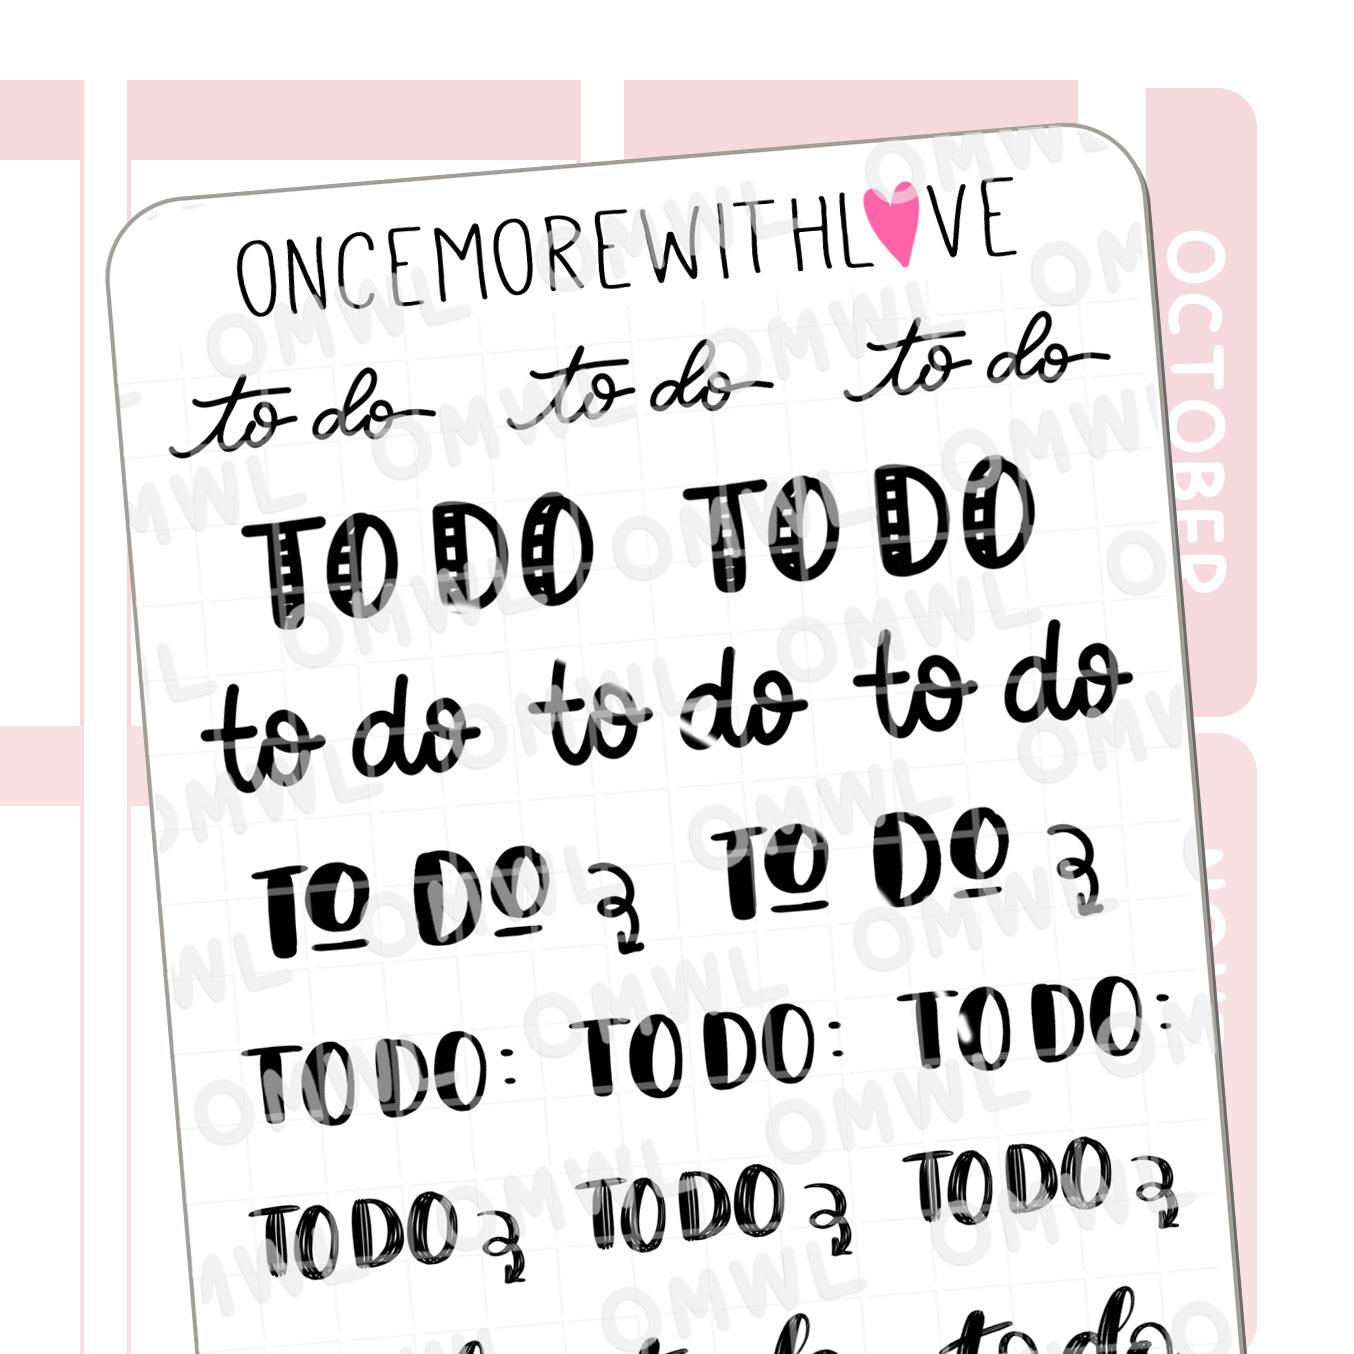 ONCEMOREWITHL♥VE
to do to do to do
TO DO TO DO
to do to do to do
TO DO TO DO
TO DO: TO DO: TO DO:
TO DO TO DO TO DO
to do
OCTOBER
OMWL OMWL OMWL OMWL OMWL